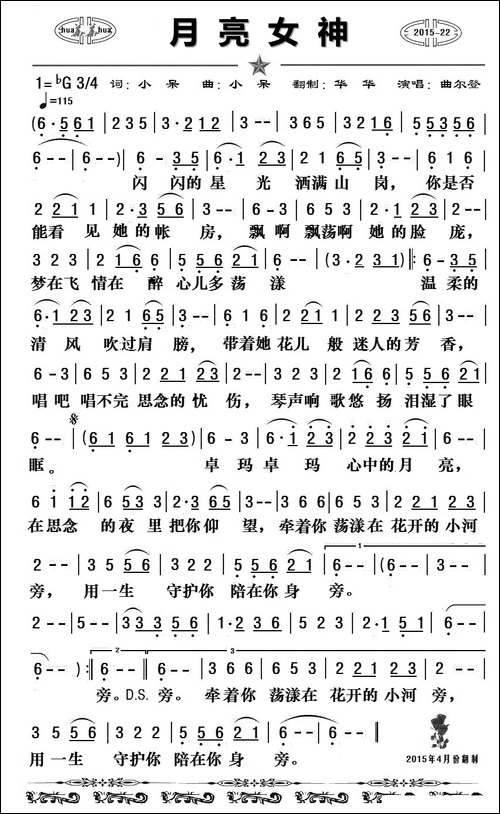 hua hua
月亮女神
2015-22
1=♭G 3/4 词：小 呆 曲：小 呆 翻制：华 华 演唱：曲尔登
♩=115
(6·561|235|3·212|3--|365|3216|55356|
6--|6--)|6-35|6·123|2165|3--|616|
闪 闪的 星 光 洒满 山 岗， 你是否
221 1|2·356|3--|6-3|653|2·123|2--|
能看 见 她 的 帐 房， 飘 啊 飘荡啊 她 的 脸 庞，
323|2166|55621|6--|(3·231)|:6-35|
梦在飞 情在 醉 心儿多 荡 漾 温 柔的
6·123|2165|3--|616|2211|2356|3--|
清 风 吹过肩 膀， 带着她 花儿 般 迷人的 芳 香，
6-3|653|22123|2--|323|2166|55621|
唱 吧 唱不完 思念的 忧 伤， 琴声响 歌悠 扬 泪湿了眼
6--|(616123)|6-6|3-6|6·123|2--|
眶。 卓 玛 卓 玛 心中的 月 亮，
6112|6533|2·365|3--|366|653|223|2123|
在思念 的夜 里 把你仰 望， 牵着你 荡漾在 花开的 小河
2--|356|322|55621|6--|(6--|3--|
1
旁， 用一生 守护你 陪在你 身 旁。
2--|5--|3356|3--|323|522|2·151|6--|
6--):|6--‖6--|366|653|223|2123|2--|
2 3
旁。D.S. 旁。 牵着你 荡漾在 花开的 小河 旁，
356|322|55621|6--|6--‖
用一生 守护你 陪在你 身 旁。
2015年4月份翻制